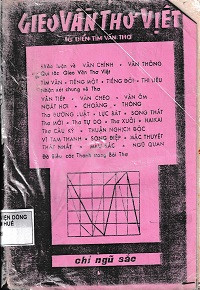 GIEO VẦN THƠ VIỆT
TỰ ĐIỂN TÌM VẦN THƠ
Khái luận về VẦN CHÍNH - VẦN THÔNG
Qui tắc Gieo Vần Thơ Việt
TÌM VẦN - TIẾNG MỘT - TIẾNG ĐÔI - THI LIỆU
Nhận xét chung về Thơ
VẦN TIẾP - VẦN CHÉO - VẦN ÔM
NGẮT HƠI - CHOÃNG - THÒNG
THƠ ĐƯỜNG LUẬT - LỤC BÁT - SONG THẤT
THƠ MỚI - THƠ TỰ DO - THƠ XUÔI - HAIKAI
THƠ CẦU KỲ - THUẬN NGHỊCH ĐỘC
VĨ TAM THANH - SONG ĐIỆP
THẤT NHẤT - NGŨ QUAN
Đồ Biểu các Thanh trong Bài Thơ
VIỆN ĐÔNG
HUẾ
chi ngũ sắc